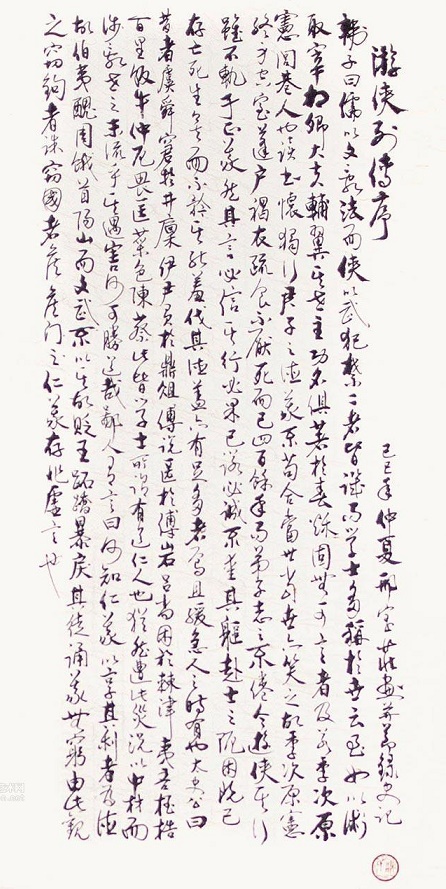 游俠列傳序
己巳年仲夏邢寶莊畫并節錄史記
韓子曰儒以文亂法而俠以武犯禁二者皆譏而學士多稱於世云至如以術
取宰相卿大夫輔翼其世主功名俱著於春秋固無可言者及若季次原
憲閭巷人也讀書懷獨行君子之德義不苟合當世當世亦笑之故季次原憲
終身空室蓬戶褐衣疏食不厭死而已四百餘年而弟子志之不倦今游俠其行
雖不軌于正義然其言必信其行必果已諾必誠不愛其軀赴士之阨困既已
存亡死生矣而不矜其能羞伐其德蓋亦有足多者焉且緩急人之時有也太史公曰
昔者虞舜窘於井廩伊尹負於鼎俎傅說匿於傅岩呂尚困於棘津夷吾桎梏
百里飯牛仲尼畏匡菜色陳蔡此皆學士所謂有道仁人也猶然遭此災況以中材而
涉亂世之末流乎其遇害何可勝道哉鄙人有言曰何知仁義以享其利者為德
故伯夷醜周餓首陽山而文武不以其故貶王跖蹻暴戾其徒誦義無窮由此觀
之竊鉤者誅竊國者侯侯門之仁義存非虛言也